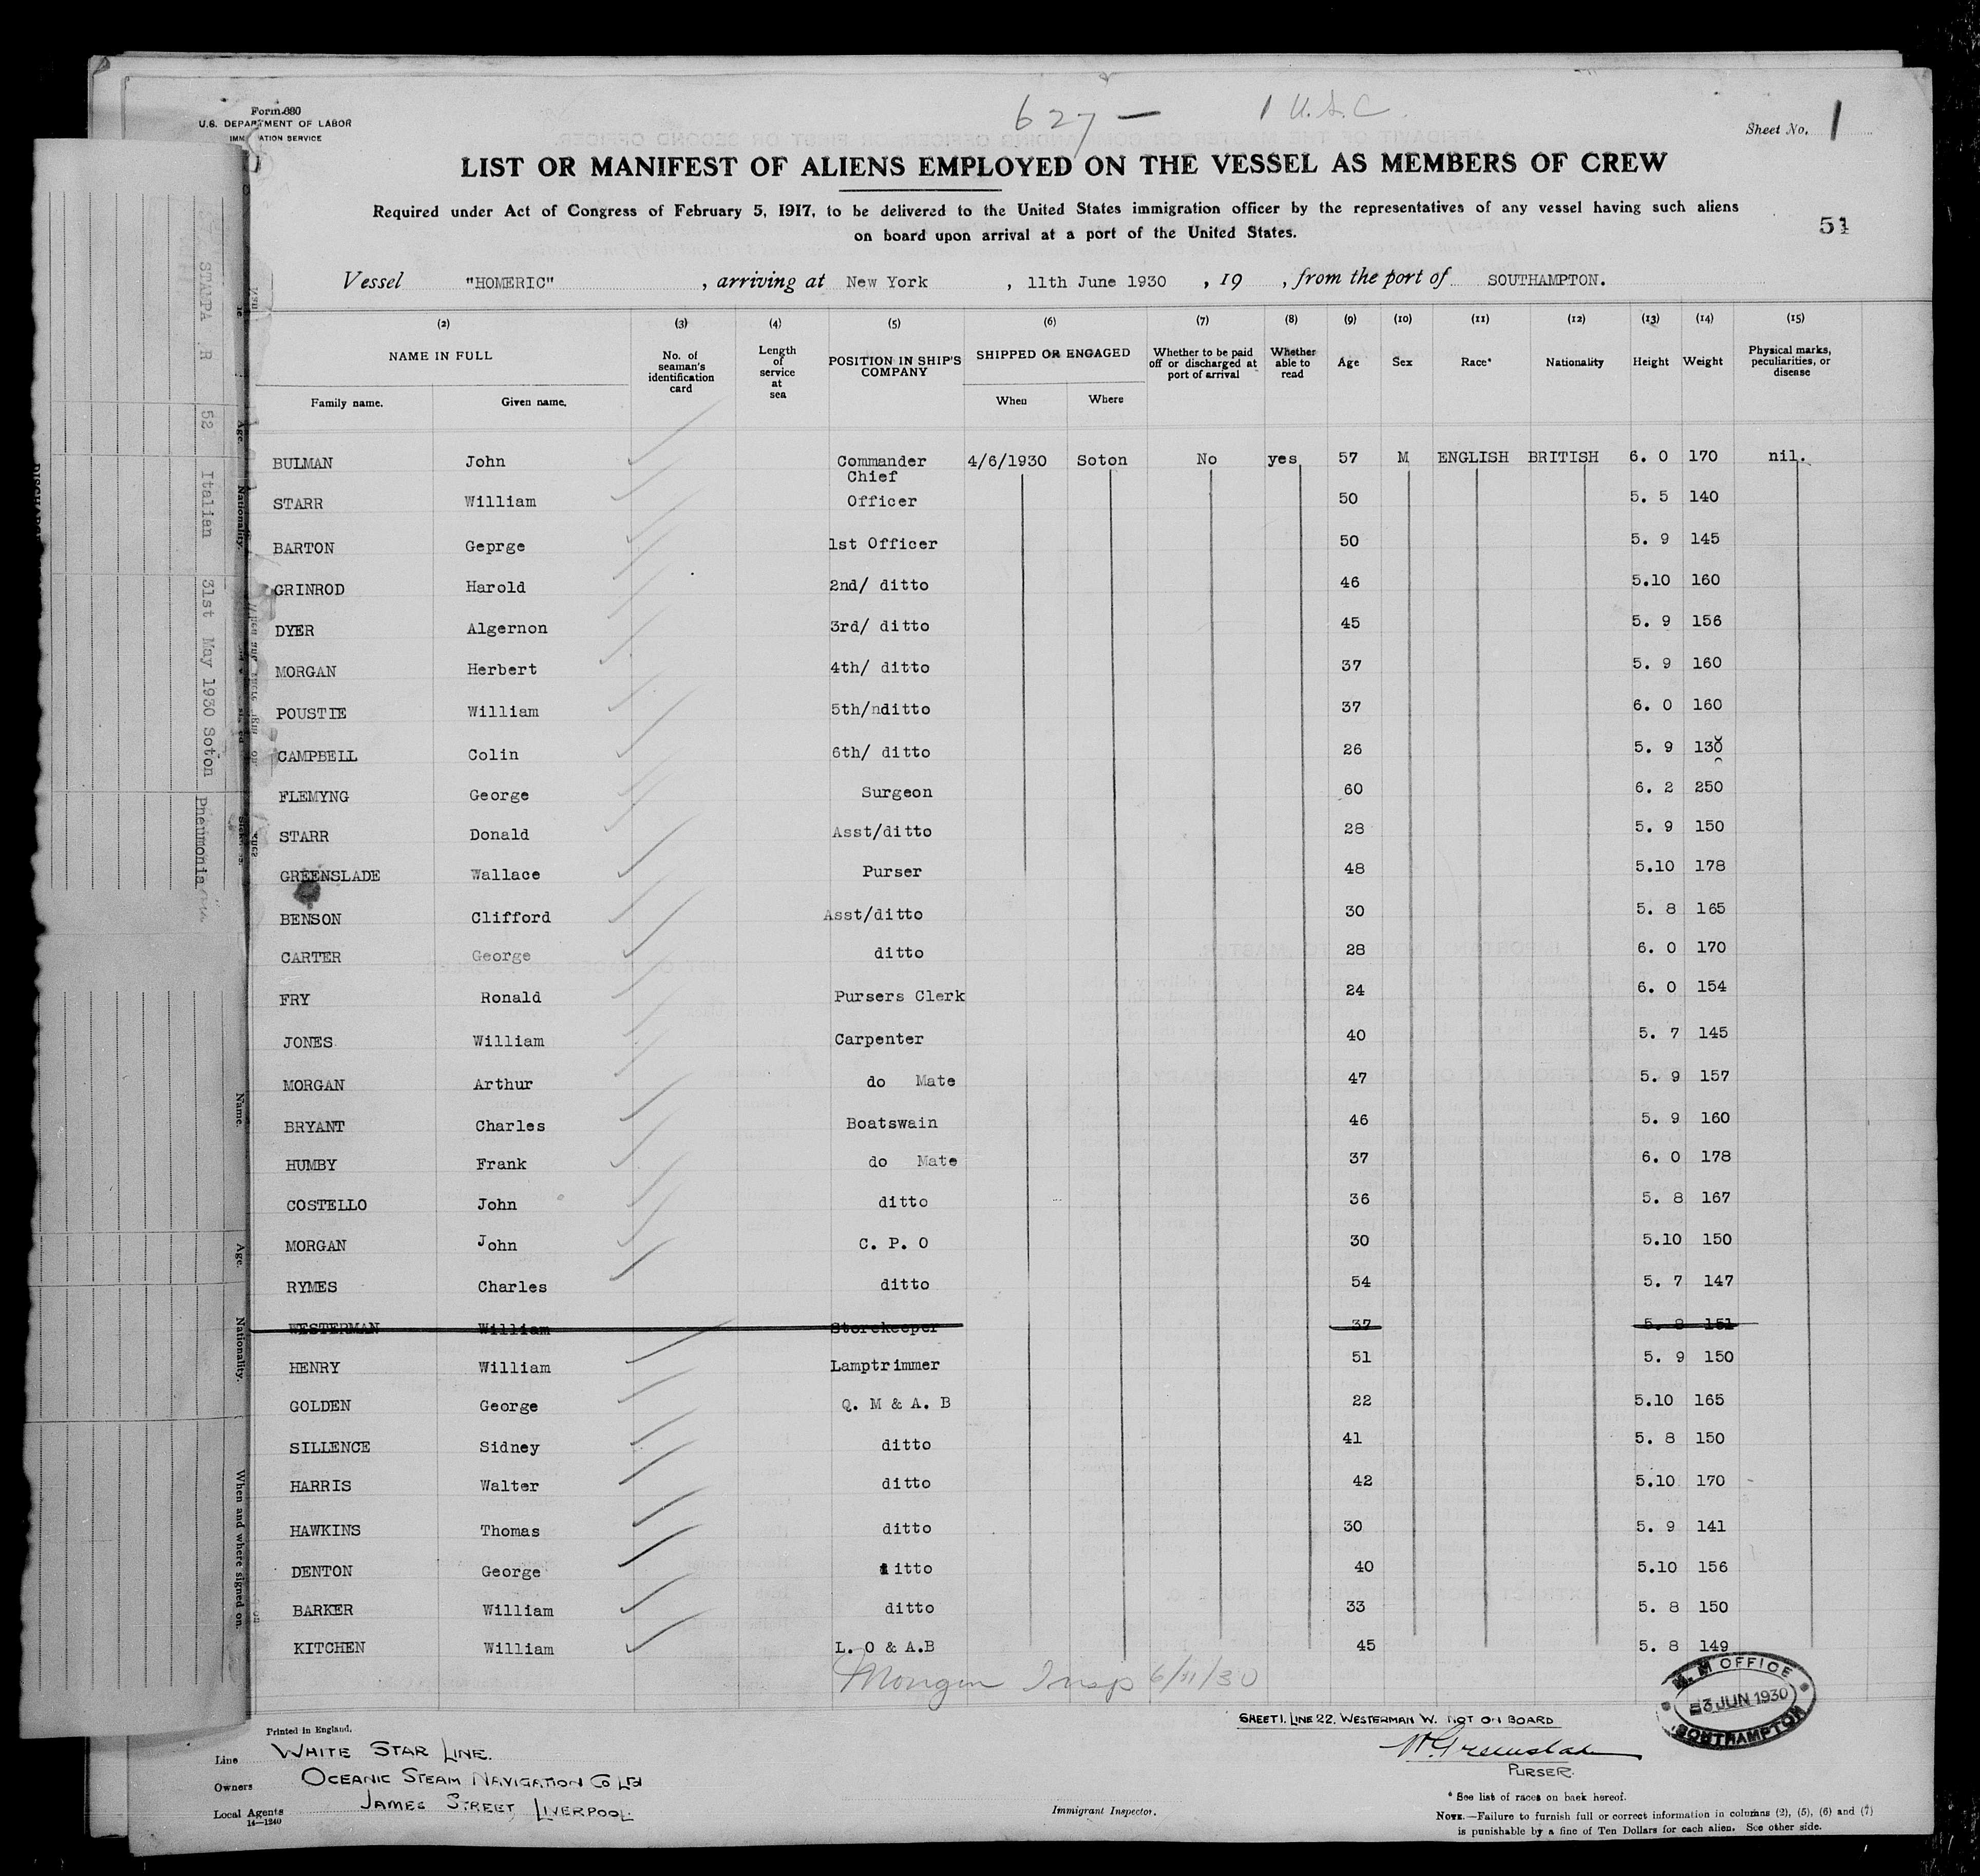 Form 680
U.S. DEPARTMENT OF LABOR
IMMIGRATION SERVICE
627 — 1 U.S.C.
Sheet No. 1
LIST OR MANIFEST OF ALIENS EMPLOYED ON THE VESSEL AS MEMBERS OF CREW
Required under Act of Congress of February 5, 1917, to be delivered to the United States immigration officer by the representatives of any vessel having such aliens
on board upon arrival at a port of the United States.
51
Vessel "HOMERIC", arriving at New York, 11th June 1930, 19 , from the port of SOUTHAMPTON.
(2) (3) (4) (5) (6) (7) (8) (9) (10) (11) (12) (13) (14) (15)
NAME IN FULL
Family name. Given name.
No. of seaman's identification card
Length of service at sea
POSITION IN SHIP'S COMPANY
SHIPPED OR ENGAGED
When Where
Whether to be paid off or discharged at port of arrival
Whether able to read
Age
Sex
Race*
Nationality
Height
Weight
Physical marks, peculiarities, or disease
BULMAN John Commander 4/6/1930 Soton No yes 57 M ENGLISH BRITISH 6. 0 170 nil.
STARR William Chief Officer 50 5. 5 140
BARTON Geprge 1st Officer 50 5. 9 145
GRINROD Harold 2nd/ ditto 46 5.10 160
DYER Algernon 3rd/ ditto 45 5. 9 156
MORGAN Herbert 4th/ ditto 37 5. 9 160
POUSTIE William 5th/nditto 37 6. 0 160
CAMPBELL Colin 6th/ ditto 26 5. 9 130
FLEMYNG George Surgeon 60 6. 2 250
STARR Donald Asst/ditto 28 5. 9 150
GREENSLADE Wallace Purser 48 5.10 178
BENSON Clifford Asst/ditto 30 5. 8 165
CARTER George ditto 28 6. 0 170
FRY Ronald Pursers Clerk 24 6. 0 154
JONES William Carpenter 40 5. 7 145
MORGAN Arthur do Mate 47 5. 9 157
BRYANT Charles Boatswain 46 5. 9 160
HUMBY Frank do Mate 37 6. 0 178
COSTELLO John ditto 36 5. 8 167
MORGAN John C. P. O 30 5.10 150
RYMES Charles ditto 54 5. 7 147
WESTERMAN William Storekeeper 37 5. 8 151
HENRY William Lamptrimmer 51 5. 9 150
GOLDEN George Q. M & A. B 22 5.10 165
SILLENCE Sidney ditto 41 5. 8 150
HARRIS Walter ditto 42 5.10 170
HAWKINS Thomas ditto 30 5. 9 141
DENTON George ditto 40 5.10 156
BARKER William ditto 33 5. 8 150
KITCHEN William L. O & A.B 45 5. 8 149
Morgan Insp 6/11/30
M. M OFFICE
3 JUN 1930
SOUTHAMPTON
SHEET 1. LINE 22. WESTERMAN W. NOT ON BOARD
W Greenslade
PURSER.
Printed in England.
Line WHITE STAR LINE.
Owners OCEANIC STEAM NAVIGATION CO LTD
Local Agents JAMES STREET LIVERPOOL.
14—1240
Immigrant Inspector.
* See list of races on back hereof.
NOTE.—Failure to furnish full or correct information in columns (2), (5), (6) and (7)
is punishable by a fine of Ten Dollars for each alien. See other side.
STAPPA .R 52 Italian 31st May 1930 Soton Pneumonia
Age. Nationality.
Name. Age. Nationality. When and where signed on.